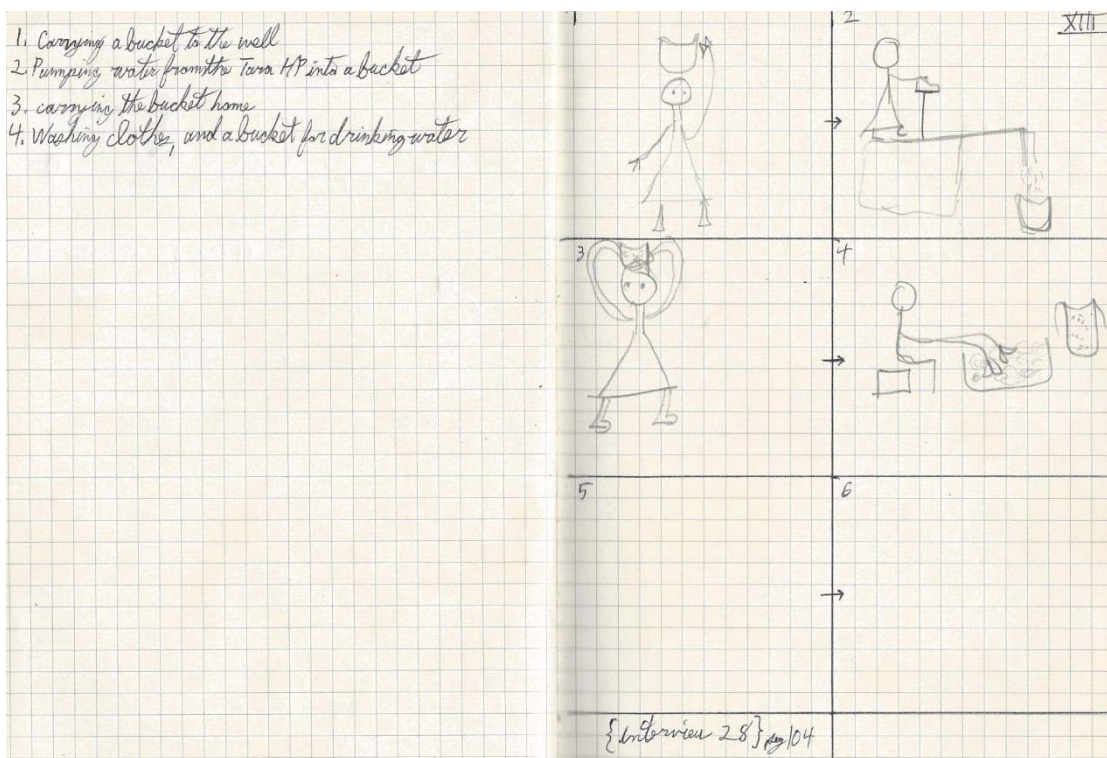 1. Carrying a bucket to the well
2 Pumping water from the Tara HP into a bucket
3. carrying the bucket home
4. Washing clothes, and a bucket for drinking water
1
2
XIII
3
4
5
6
{interview 28} pg 104